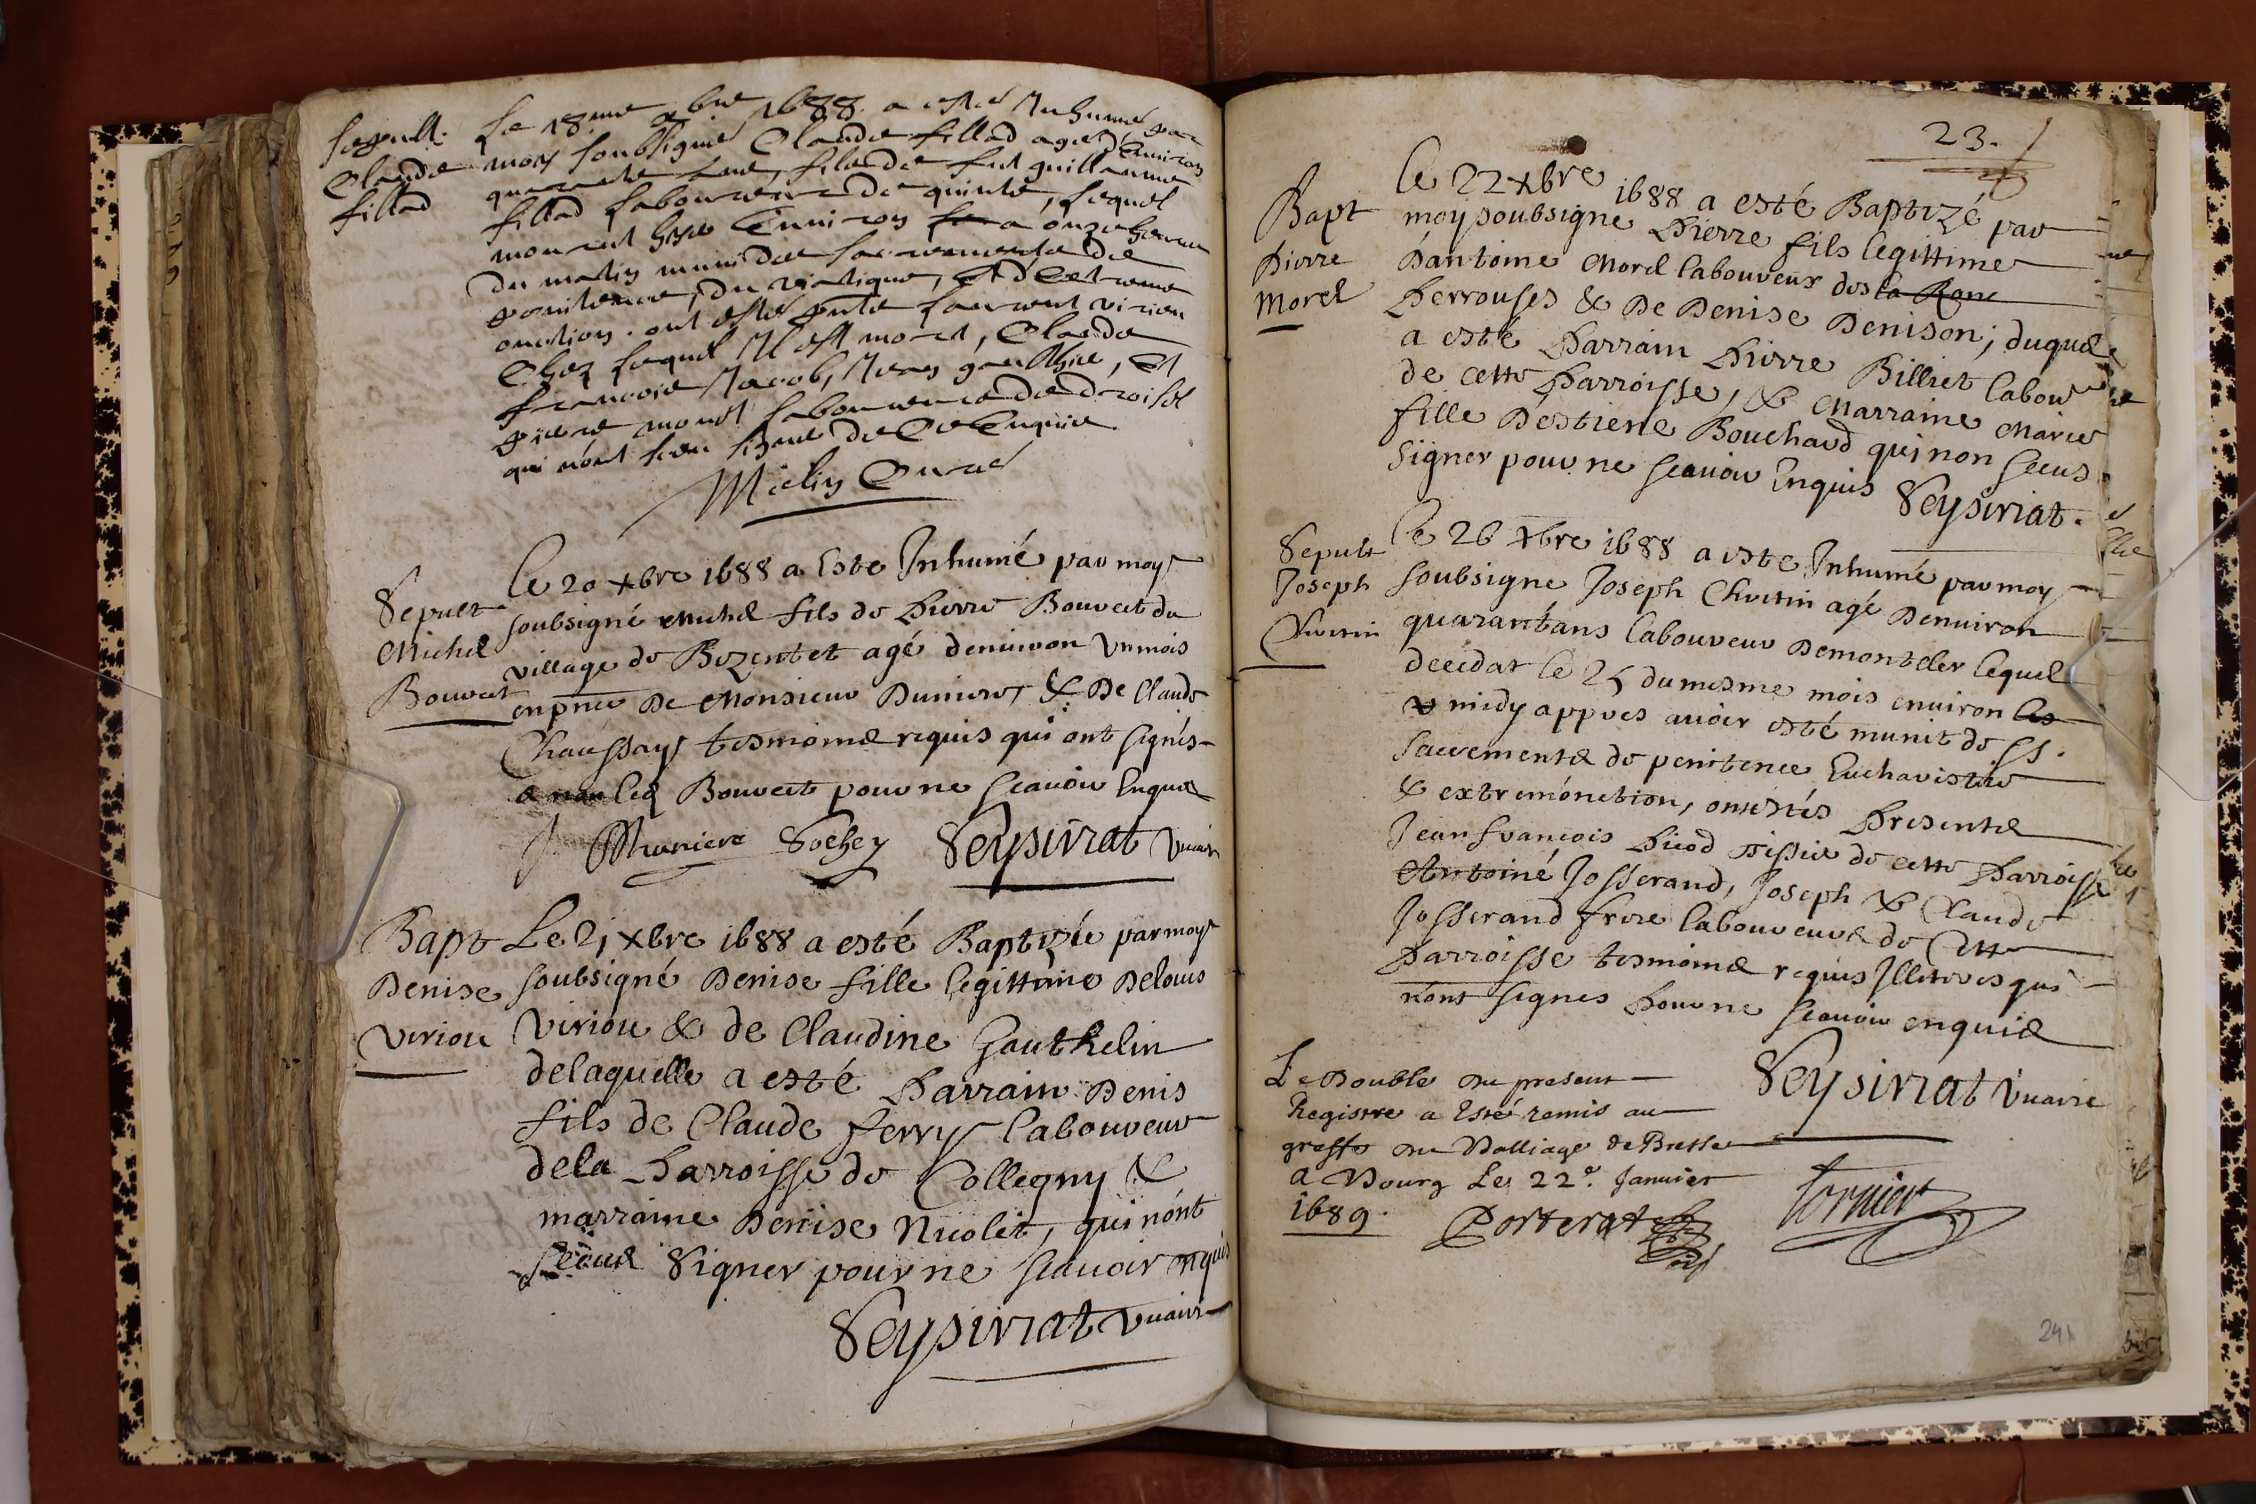 Sepult. Le 18.me xbre 1688. a esté Inhumé par
Claude moy soubsigné Claude fillod agé d'environ
fillod quarante ans, fils de fut guillaume
fillod laboureur de quinte, lequel
mourut hyer Environ a onze heure
du matin muni des sacrements de
penitence, du viatique, Et d'Extreme
onction. ont esté pnts Laurent virieu
Chez lequel Il est mort, Claude
francois Jacob, Jean gauthie, Et
piere monet laboureurs de droisel
qui n'ont sceu signe de Ce Enquie.
Mielin Curé
Le 20 xbre 1688 a Este Inhumé par moy
Sepult soubsigné Michel fils de Pierre Bouvet du
Michel village de Bezentet agé denuiron Un mois
Bouvet en pnce De Monsieur Duniere, & De Claude
Chaussay tesmoins requis qui ont signés
& non led Bouvet pour ne scauoir Enquis
Muniere Sochey Seysiriat Vicaire
Bapt Le 21 xbre 1688 a esté Baptizée par moy
Denise soubsigné Denise fille legittime De louis
Viriou Viriou & de Claudine Gauthelin
delaquelle a esté Parrain Denis
fils de Claude ferry laboureur
dela Parroisse de Collegny &
marraine Denise Nicolet, qui nónt
sceus Signer pour ne scauoir enquis
Seysiriat vicaire
23.
le 22 xbre 1688 a esté Baptizé par
Bapt moy soubsigne Pierre fils legittime
Pierre D'antoine Morel laboureur des
Morel Perrouses & De Denise Denison; duquel
a esté Parrain Pierre Billiet labour
de cette Parroisse, & Marraine Marie
fille Destiene Bouchard qui non sceus
Signer pour ne scauoir Enquis Seysiriat.
Le 26 xbre 1688 a este Inhumé par moy
Sepult soubsigne Joseph Chvetin agé Denuiron
Joseph quarant'ans laboureur Demonteler lequel
Chvetin decedat le 25 du mesme mois enuiron les
midy appres auoir esté munit de ss.
sacrements de penitence Eucharistie
& extremónction, ont estés Presents
Jean francois Picod de cette Parroisse
Antoiné Josserand, Joseph & Claude
Josserand frere laboureurs de Cette
Parroisse tesmoins requis Illeteres qui
nónt signes Pour ne scauoir enquis
Seysiriat Vicaire
Le Double du present
Registre a Esté remis au
greffe du Balliage de Bresse
a Bourg Le 22.e Janvier
1689. Porterat Tornier
241